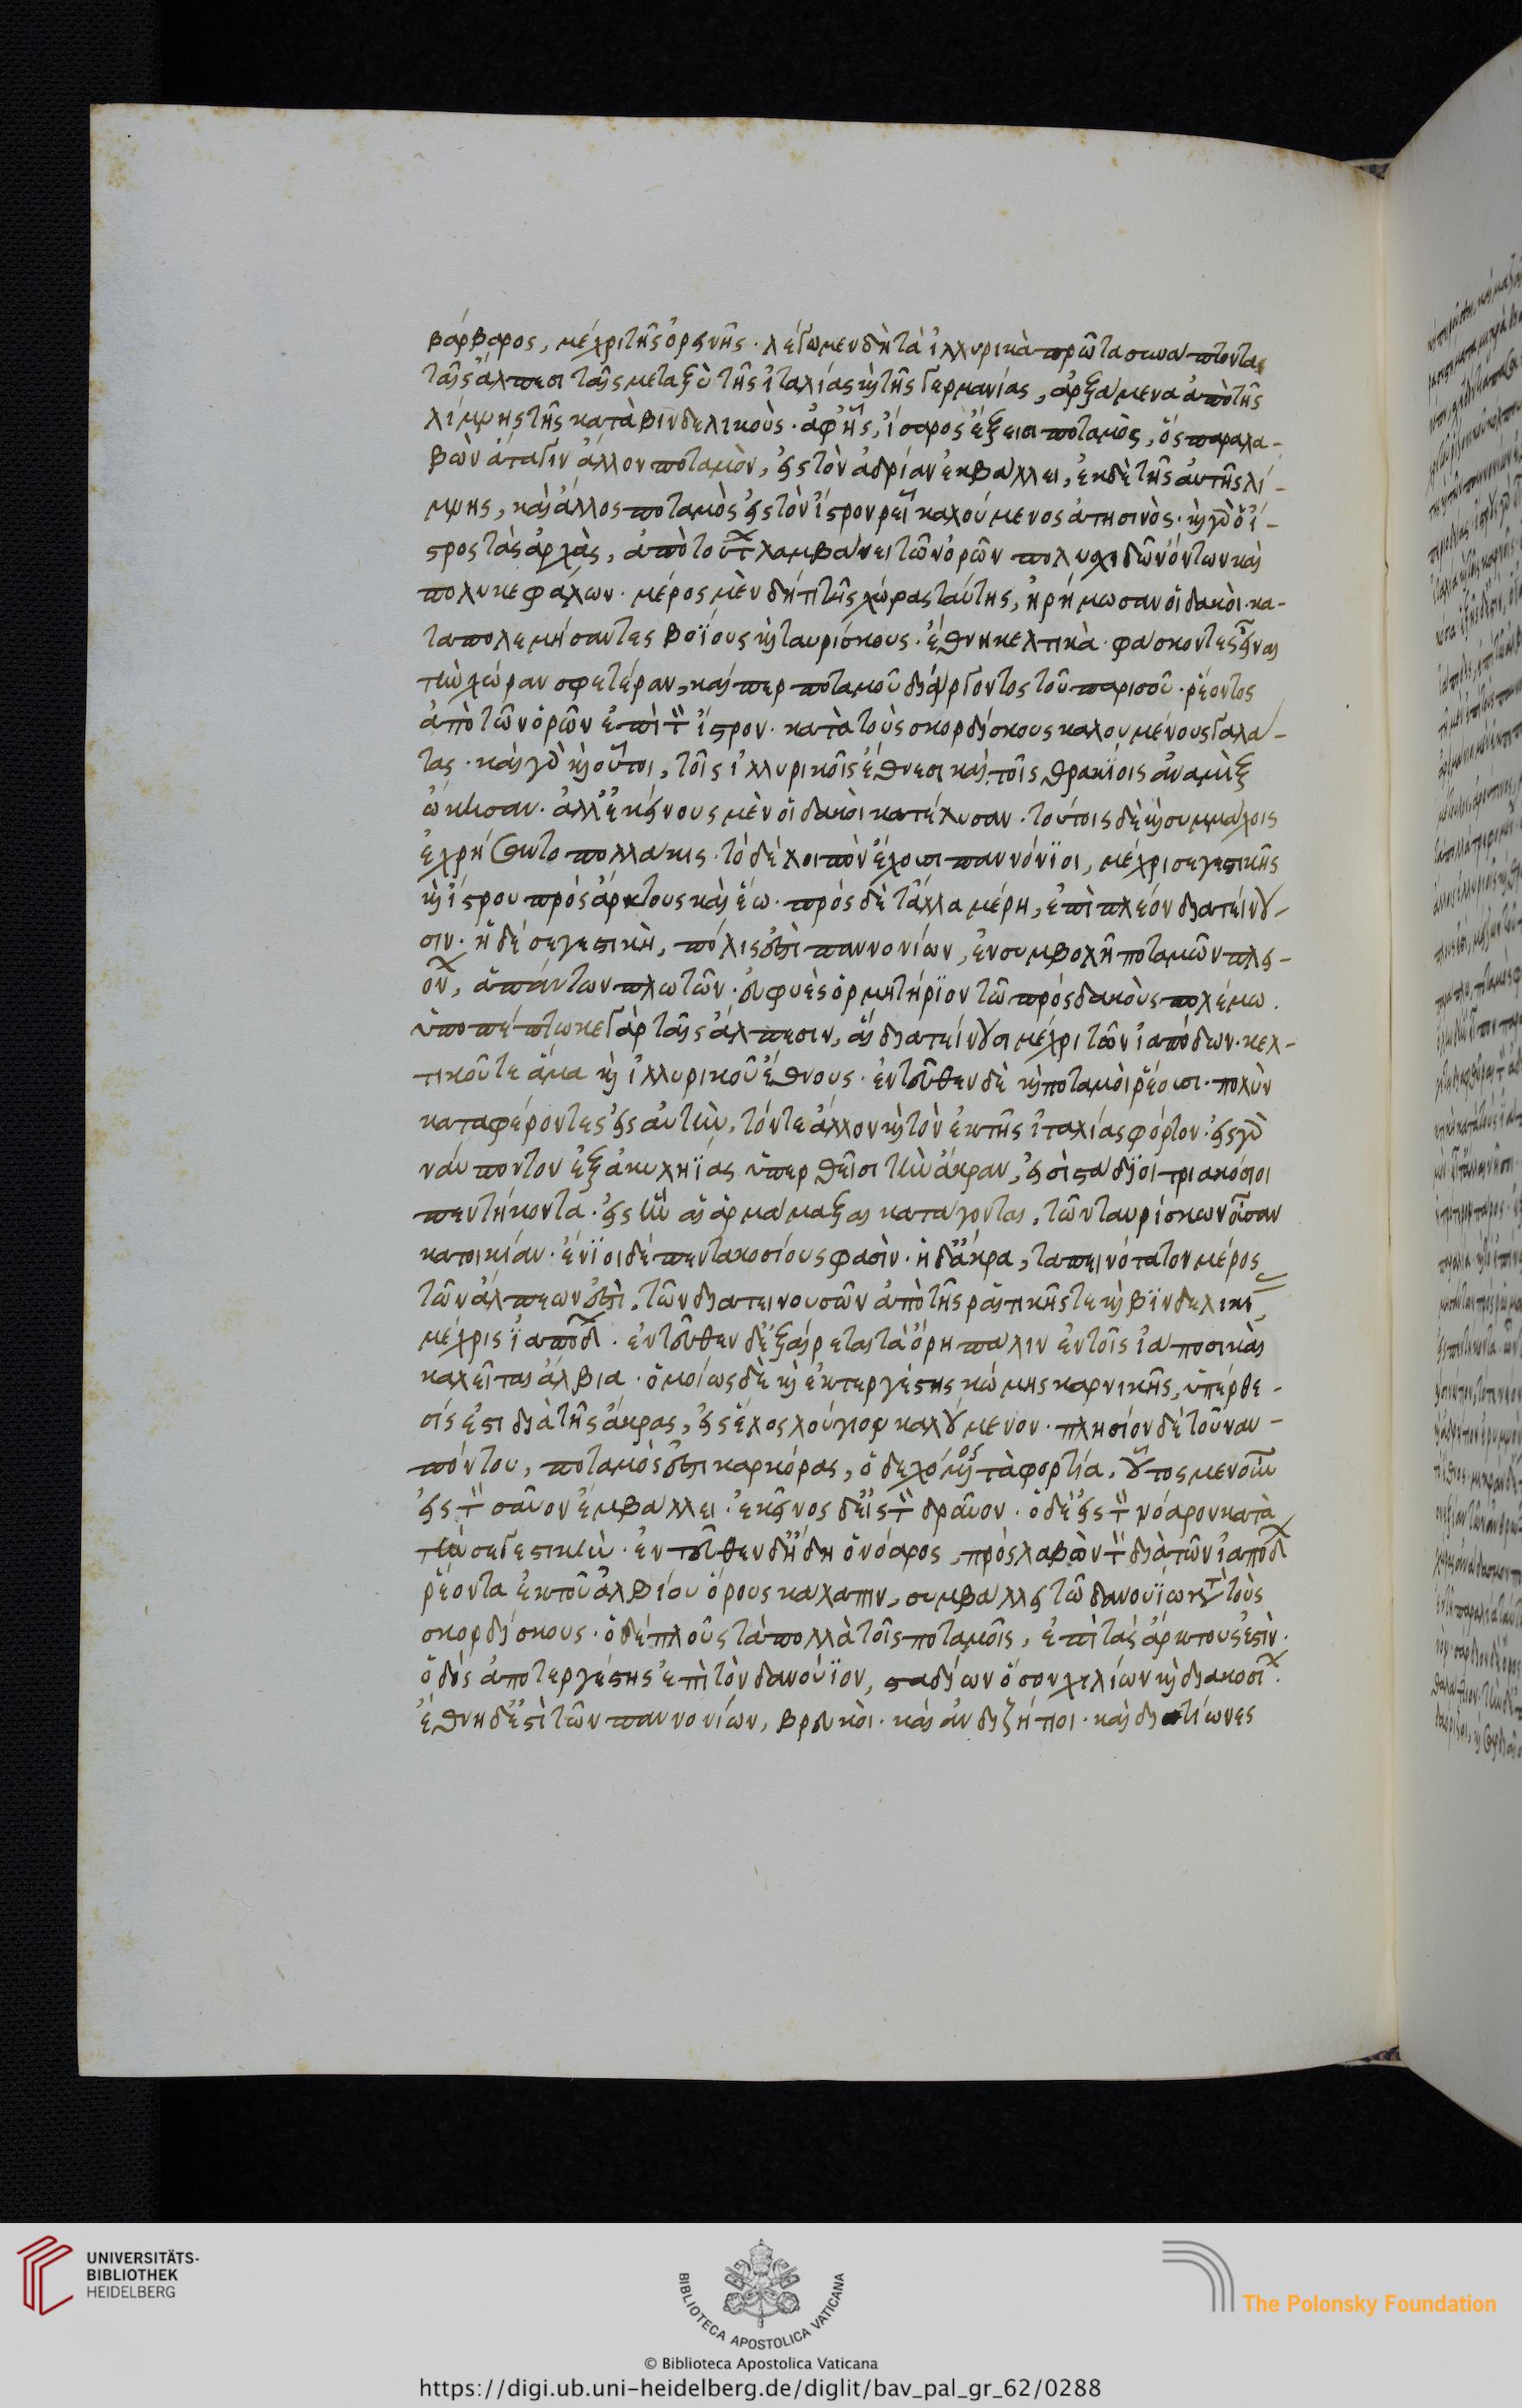 βάρβαρος, μέχρι τῆς ὀρεινῆς. λέγωμεν δὴ τὰ ἰλλυρικὰ πρῶτα συνάπτοντα
ταῖς ἄλπεσι ταῖς μεταξὺ τῆς ἰταλίας κὴ τῆς γερμανίας, ἀρξάμενα ἀπὸ τῆς
λίμνης τῆς κατὰ βινδελικοὺς. ἀφ' ἧς, ἴσαρος ἔξεισι ποταμὸς, ὃς παραλα-
βὼν ἀταγιν ἄλλον ποταμὸν, εἰς τὸν ἀδρίαν ἐκβάλλει, ἐκ δὲ τῆς ἀυτῆς λί-
μνης, καὶ ἄλλος ποταμὸς εἰς τὸν ἴστρον ῥεῖ καλούμενος ἀτησινὸς. καὶ γὰρ ὁ ἴ-
στρος τὰς ἀρχὰς, ἀπὸ τούτων λαμβάνει τῶν ὀρῶν πολυχιδῶν ὄντων καὶ
πολυκεφάλων. μέρος μὲν δή τι τῆς χώρας ταύτης, ἠρήμωσαν οἱ δακὸι. κα-
ταπολεμήσαντες βοΐους καὶ ταυρίσκους. ἔθνη κελτικὰ. φάσκοντες εἶναι
τὴν χώραν σφετέραν, καίπερ ποταμοῦ διείργοντος τοῦ παρισοῦ. ῥέοντος
ἀπὸ τῶν ὀρῶν ἐπὶ τὸν ἴστρον. κατὰ τοὺς σκορδίσκους καλουμένους γαλά-
τας. καὶ γὰρ καὶ οὗτοι, τοῖς ἰλλυρικοῖς ἔθνεσι καὶ τοῖς θρακίοις ἀναμὶξ
ὤκησαν. ἀλλ' ἐκείνους μὲν οἱ δακὸι κατέλυσαν. τούτοις δὲ καὶ συμμάχοις
ἐχρήσαντο πολλάκις. τὸ δὲ λοιπὸν ἔχουσι παννόνϊοι, μέχρι σεγεστικῆς
καὶ ἴστρου πρὸς ἄρκτους καὶ ἕω. πρὸς δὲ τἄλλα μέρη, ἐπὶ πλέον διατείνου-
σιν. ἡ δέ σεγεστικὴ, πόλις ἐστὶ παννονίων, ἐν συμβολῆ ποταμῶν πλει-
όνων, ἁπάντων πλωτῶν. εὐφυὲς ὁρμητήριον τῶ πρὸς δακοὺς πολέμω.
ὑποπέπτωκε γὰρ ταῖς ἄλπεσιν, αἳ διατείνουσι μέχρι τῶν ἰαπόδων. κελ-
τικοῦ τε ἅμα καὶ ἰλλυρικοῦ ἔθνους. ἐντεῦθεν δὲ καὶ ποταμὸι ῥέουσι. πολὺν
καταφέροντες εἰς αὐτὴν, τόν τε ἄλλον καὶ τὸν ἐκ τῆς ἰταλίας φόρτον. εἰς γὰρ
νάυποντον ἐξ ἀκυληΐας ὑπερθεῖσι τὴν ἄκραν, εἰσὶ στάδιοι τριακόσιοι
πεντήκοντα. εἰς ἣν αἱ ἁρμάμαξαι κατάγονται, τῶν ταυρίσκων οὖσαν
κατοικίαν. ἔνϊοι δέ πεντακοσίους φασὶν. ἡ δ' ἄκρα, ταπεινότατον μέρος
τῶν ἄλπεων ἐστὶ, τῶν διατεινουσῶν ἀπὸ τῆς ῥαιτικῆς τε καὶ βϊνδελικῆς
μέχρις ϊαπόδων. ἐντεῦθεν δ' ἐξαίρεται τὰ ὄρη πάλιν ἐν τοῖς ἰάποσι καὶ
καλεῖται ἄλβια. ὁμοίως δὲ καὶ ἐκ τεργέστης κώμης καρνικῆς, ὑπέρθε-
σίς ἐστι διὰ τῆς ἄκρας, εἰς ἕλος λούγιον καλούμενον. πλησίον δὲ τοῦ ναυ-
πόντου, ποταμός ἐστι καρκόρας, ὁ δεχόμενος τὰ φορτία. οὗτος μεν οὖν
εἰς τὸν σαῦον ἐμβάλλει. ἐκεῖνος δ' εἰς τὸν δραῦον. ὁ δὲ εἰς τὸν νόαρον κατὰ
τὴν σεγεστικὴν. ἐντεῦθεν δ' ἤδη ὁ νόαρος, πρὸς λαβὼν τὸν διὰ τῶν ἰαπόδων
ῥέοντα ἐκ τοῦ ἀλβίου ὄρους κάλαπιν, συμβάλλει τῶ δανουΐω κατὰ τοὺς
σκορδίσκους. ὁ δὲ πλοῦς τὰ πολλὰ τοῖς ποταμοῖς, ἐπὶ τὰς ἄρκτους ἐστὶν.
ὁδὸς ἀπο τεργέστης ἐπὶ τὸν δανούϊον, σταδίων ὅσον χιλίων καὶ διακοσίων.
ἔθνη δ' ἐστὶ τῶν παννονίων, βρεῦκοι. καὶ ἀνδιζήτιοι. καὶ διτίωνες
UNIVERSITÄTS-
BIBLIOTHEK
HEIDELBERG
BIBLIOTECA APOSTOLICA VATICANA
© Biblioteca Apostolica Vaticana
The Polonsky Foundation
https://digi.ub.uni-heidelberg.de/diglit/bav_pal_gr_62/0288